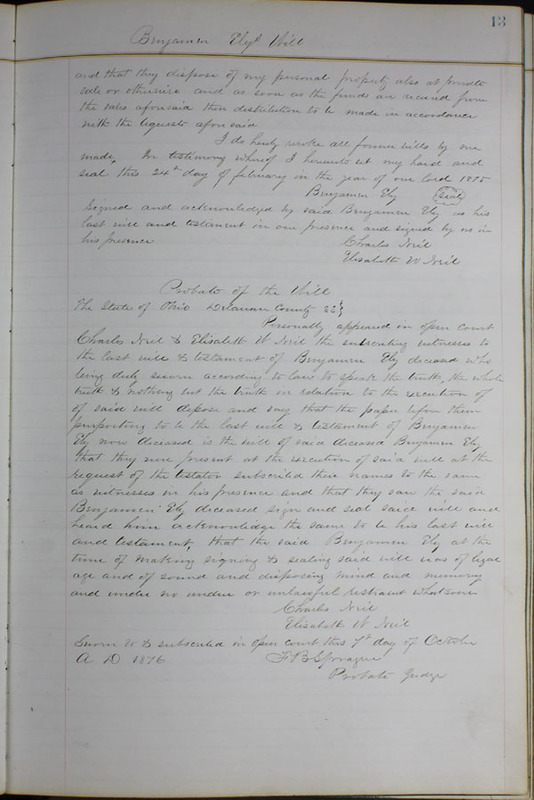 13
Benjamin Elys Will
and that they dispose of my personal property also at private
sale or otherwise and as soon as the funds are received from
the sales aforesaid then distribution to be made in accordance
with the bequests aforesaid
I do hereby revoke all former wills by me
made, In testimony whereof I hereunto set my hand and
seal this 24th day of february in the year of our lord 1875
Benjamin Ely (Seal)
Signed and acknowledged by said Benjamin Ely as his
last will and testament in our presence and signed by us in
his presence
Charles Neil
Elisabeth W Neil
Probate of the Will
The State of Ohio Delaware County SS
Personally appeared in open court
Charles Neil & Elisabeth W Neil the subscribing witnesses to
the last will & testament of Benjamin Ely deceased who
being duly sworn according to law to speak the truth, the whole
truth & nothing but the truth in relation to the execution of
of said will depose and say that the paper before them
purporting to be the last will & testament of Benjamin
Ely now deceased is the will of said deceased Benjamin Ely
that they were present at the execution of said will at the
request of the testator subscribed their names to the same
as witnesses in his presence and that they saw the said
Benjamin Ely deceased sign and seal said will and
heard him acknowledge the same to be his last will
and testament, that the said Benjamin Ely at the
time of making signing & sealing said will was of legal
age and of sound and disposing mind and memory
and under no undue or unlawful restraint whatsoever
Charles Neil
Elisabeth W Neil
Sworn to & subscribed in open court this 7th day of October
A D 1876 F B Sprague
Probate Judge